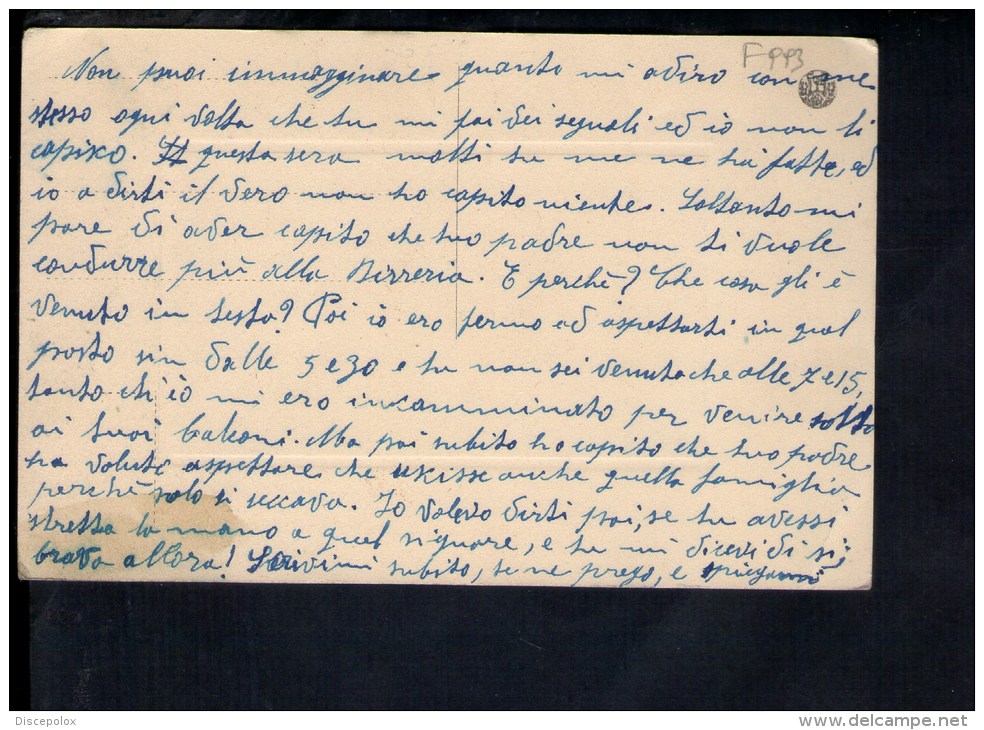 F 993
Non puoi immagginare quanto mi adiro con me
stesso ogni volta che tu mi fai dei segnali ed io non li
capisco. questa sera molti tu me ne hai fatte, ed
io a dirti il vero non ho capito niente. Soltanto mi
pare di aver capito che tuo padre non ti vuole
condurre più alla Birreria. E perchè? Che cosa gli è
venuto in testa? Poi io ero fermo ad aspettarti in quel
posto sin dalle 5 e 30 e tu non sei venuta che alle 7 e 15,
tanto ch'io mi ero incamminato per venire sotto
ai tuoi balconi. Ma poi subito ho capito che tuo padre
ha voluto aspettare che uscisse anche quella famiglia
perchè solo si seccava. Io volevo dirti poi, se tu avessi
stretto la mano a quel signore, e tu mi dicevi di si;
brava allora! Scrivimi subito, te ne prego, e spiegami
Discepolox
http://www.delcampe.net